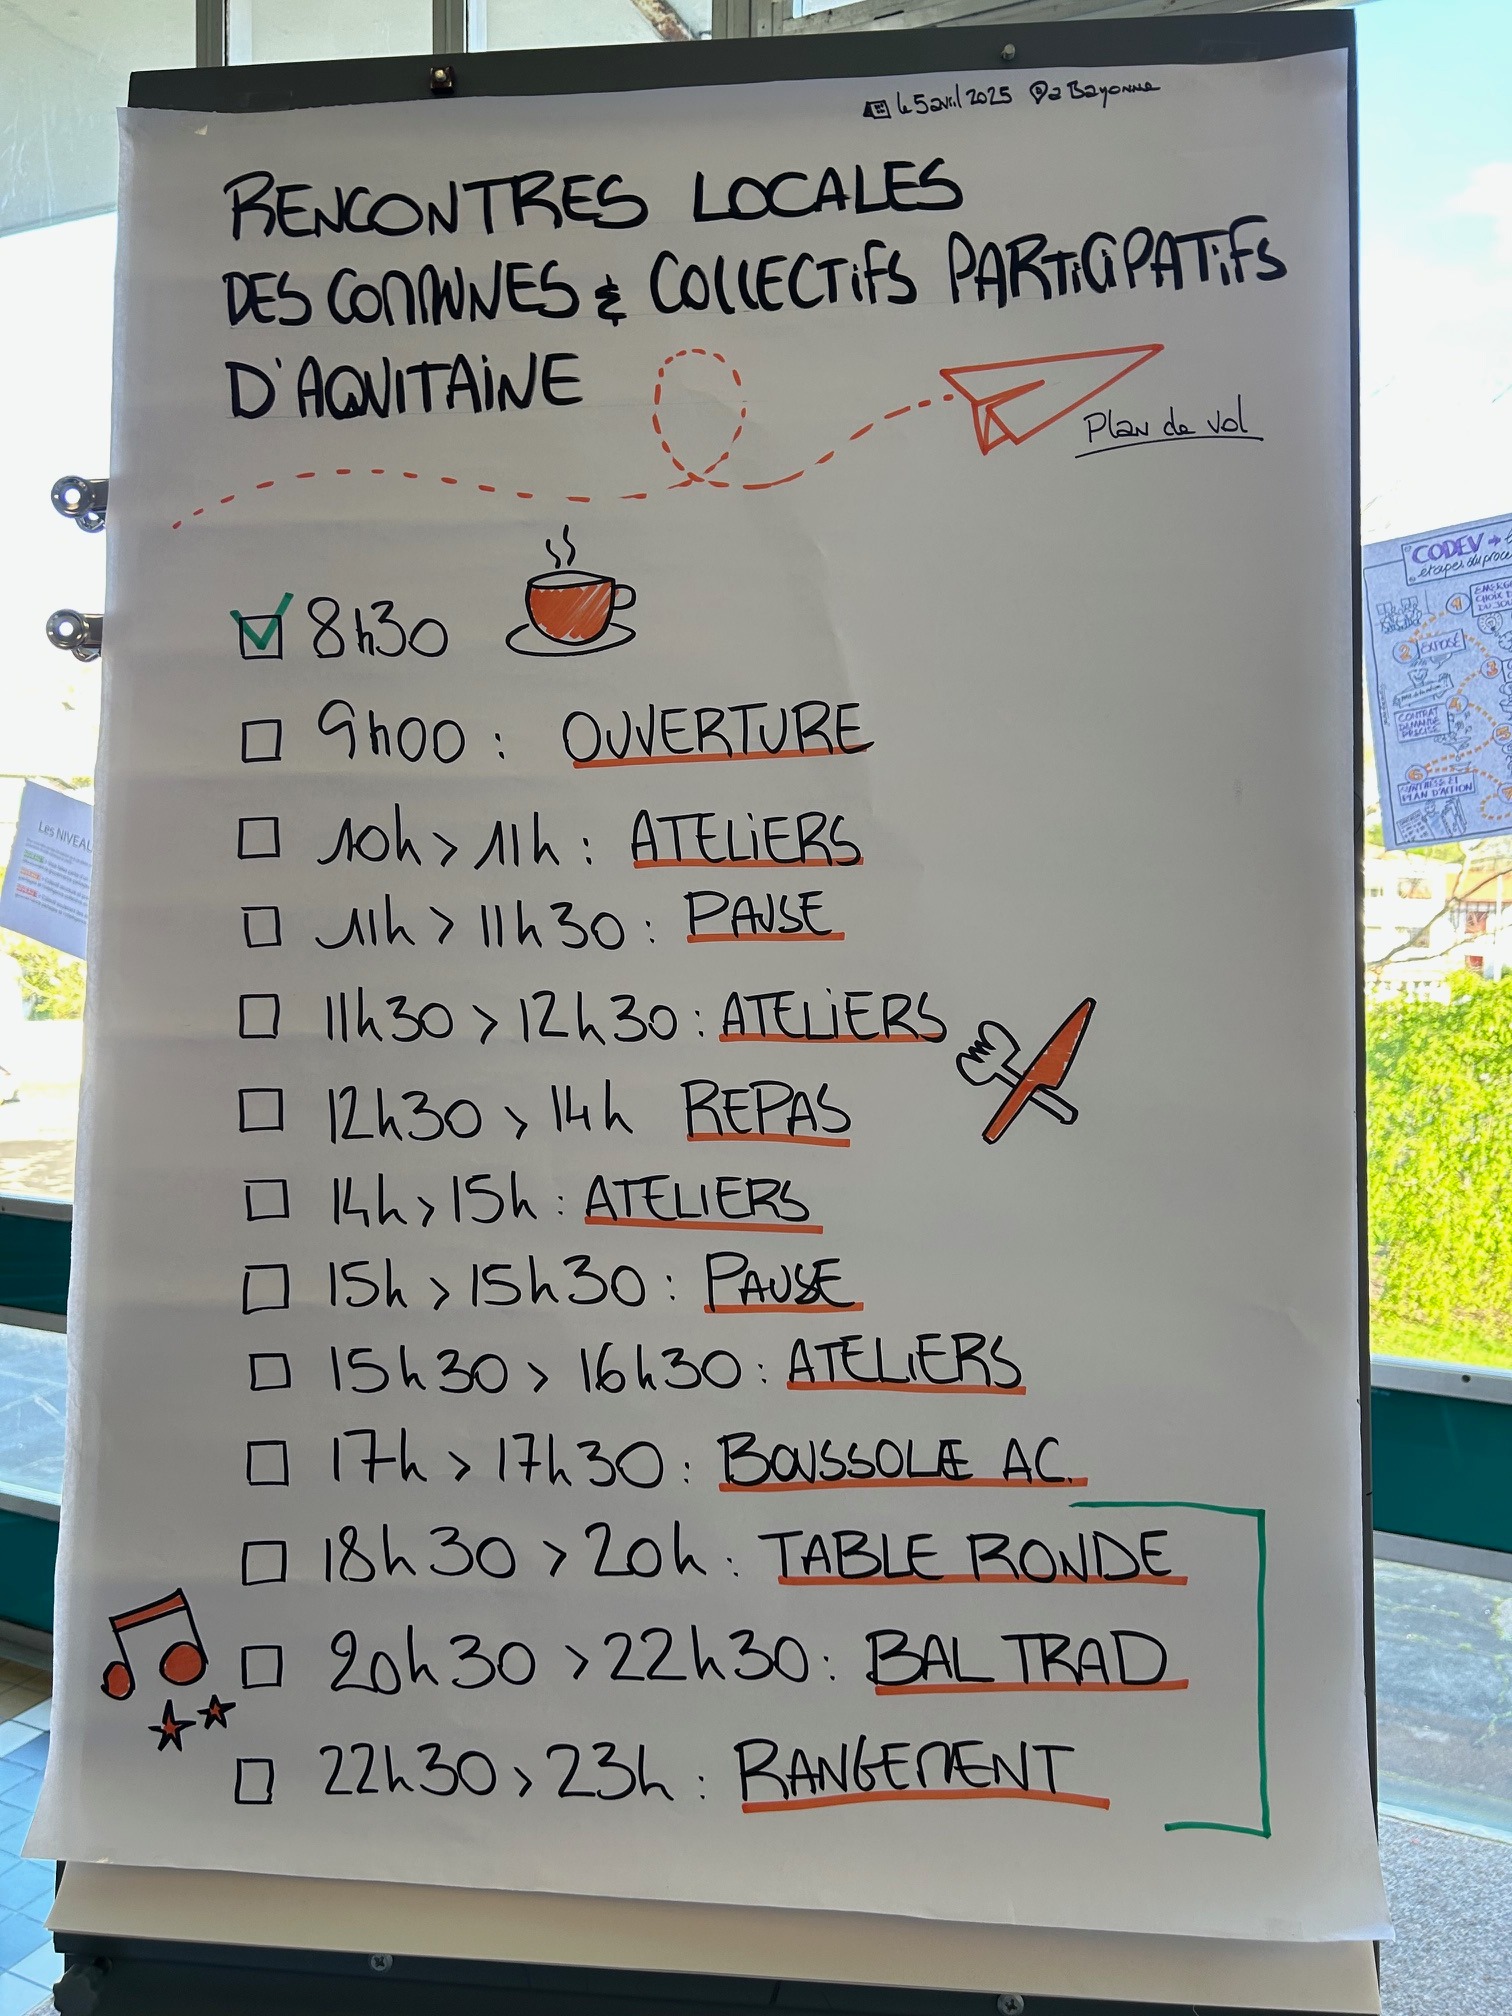 le 5 avril 2025 à Bayonne
RENCONTRES LOCALES
DES COMMUNES & COLLECTIFS PARTICIPATIFS
D'AQUITAINE
Plan de vol
8h30
9h00 : OUVERTURE
10h > 11h : ATELIERS
11h > 11h30 : PAUSE
11h30 > 12h30 : ATELIERS
12h30 > 14h REPAS
14h > 15h : ATELIERS
15h > 15h30 : PAUSE
15h30 > 16h30 : ATELIERS
17h > 17h30 : BOUSSOLE AC.
18h30 > 20h : TABLE RONDE
20h30 > 22h30 : BAL TRAD
22h30 > 23h : RANGEMENT
Les NIVEAU
CODEV →
étapes du proce
1
2 EXPOSÉ
3
CONTRAT
DEMANDE
PRÉCISE
4
5
6
SYNTHÈSE ET
PLAN D'ACTION